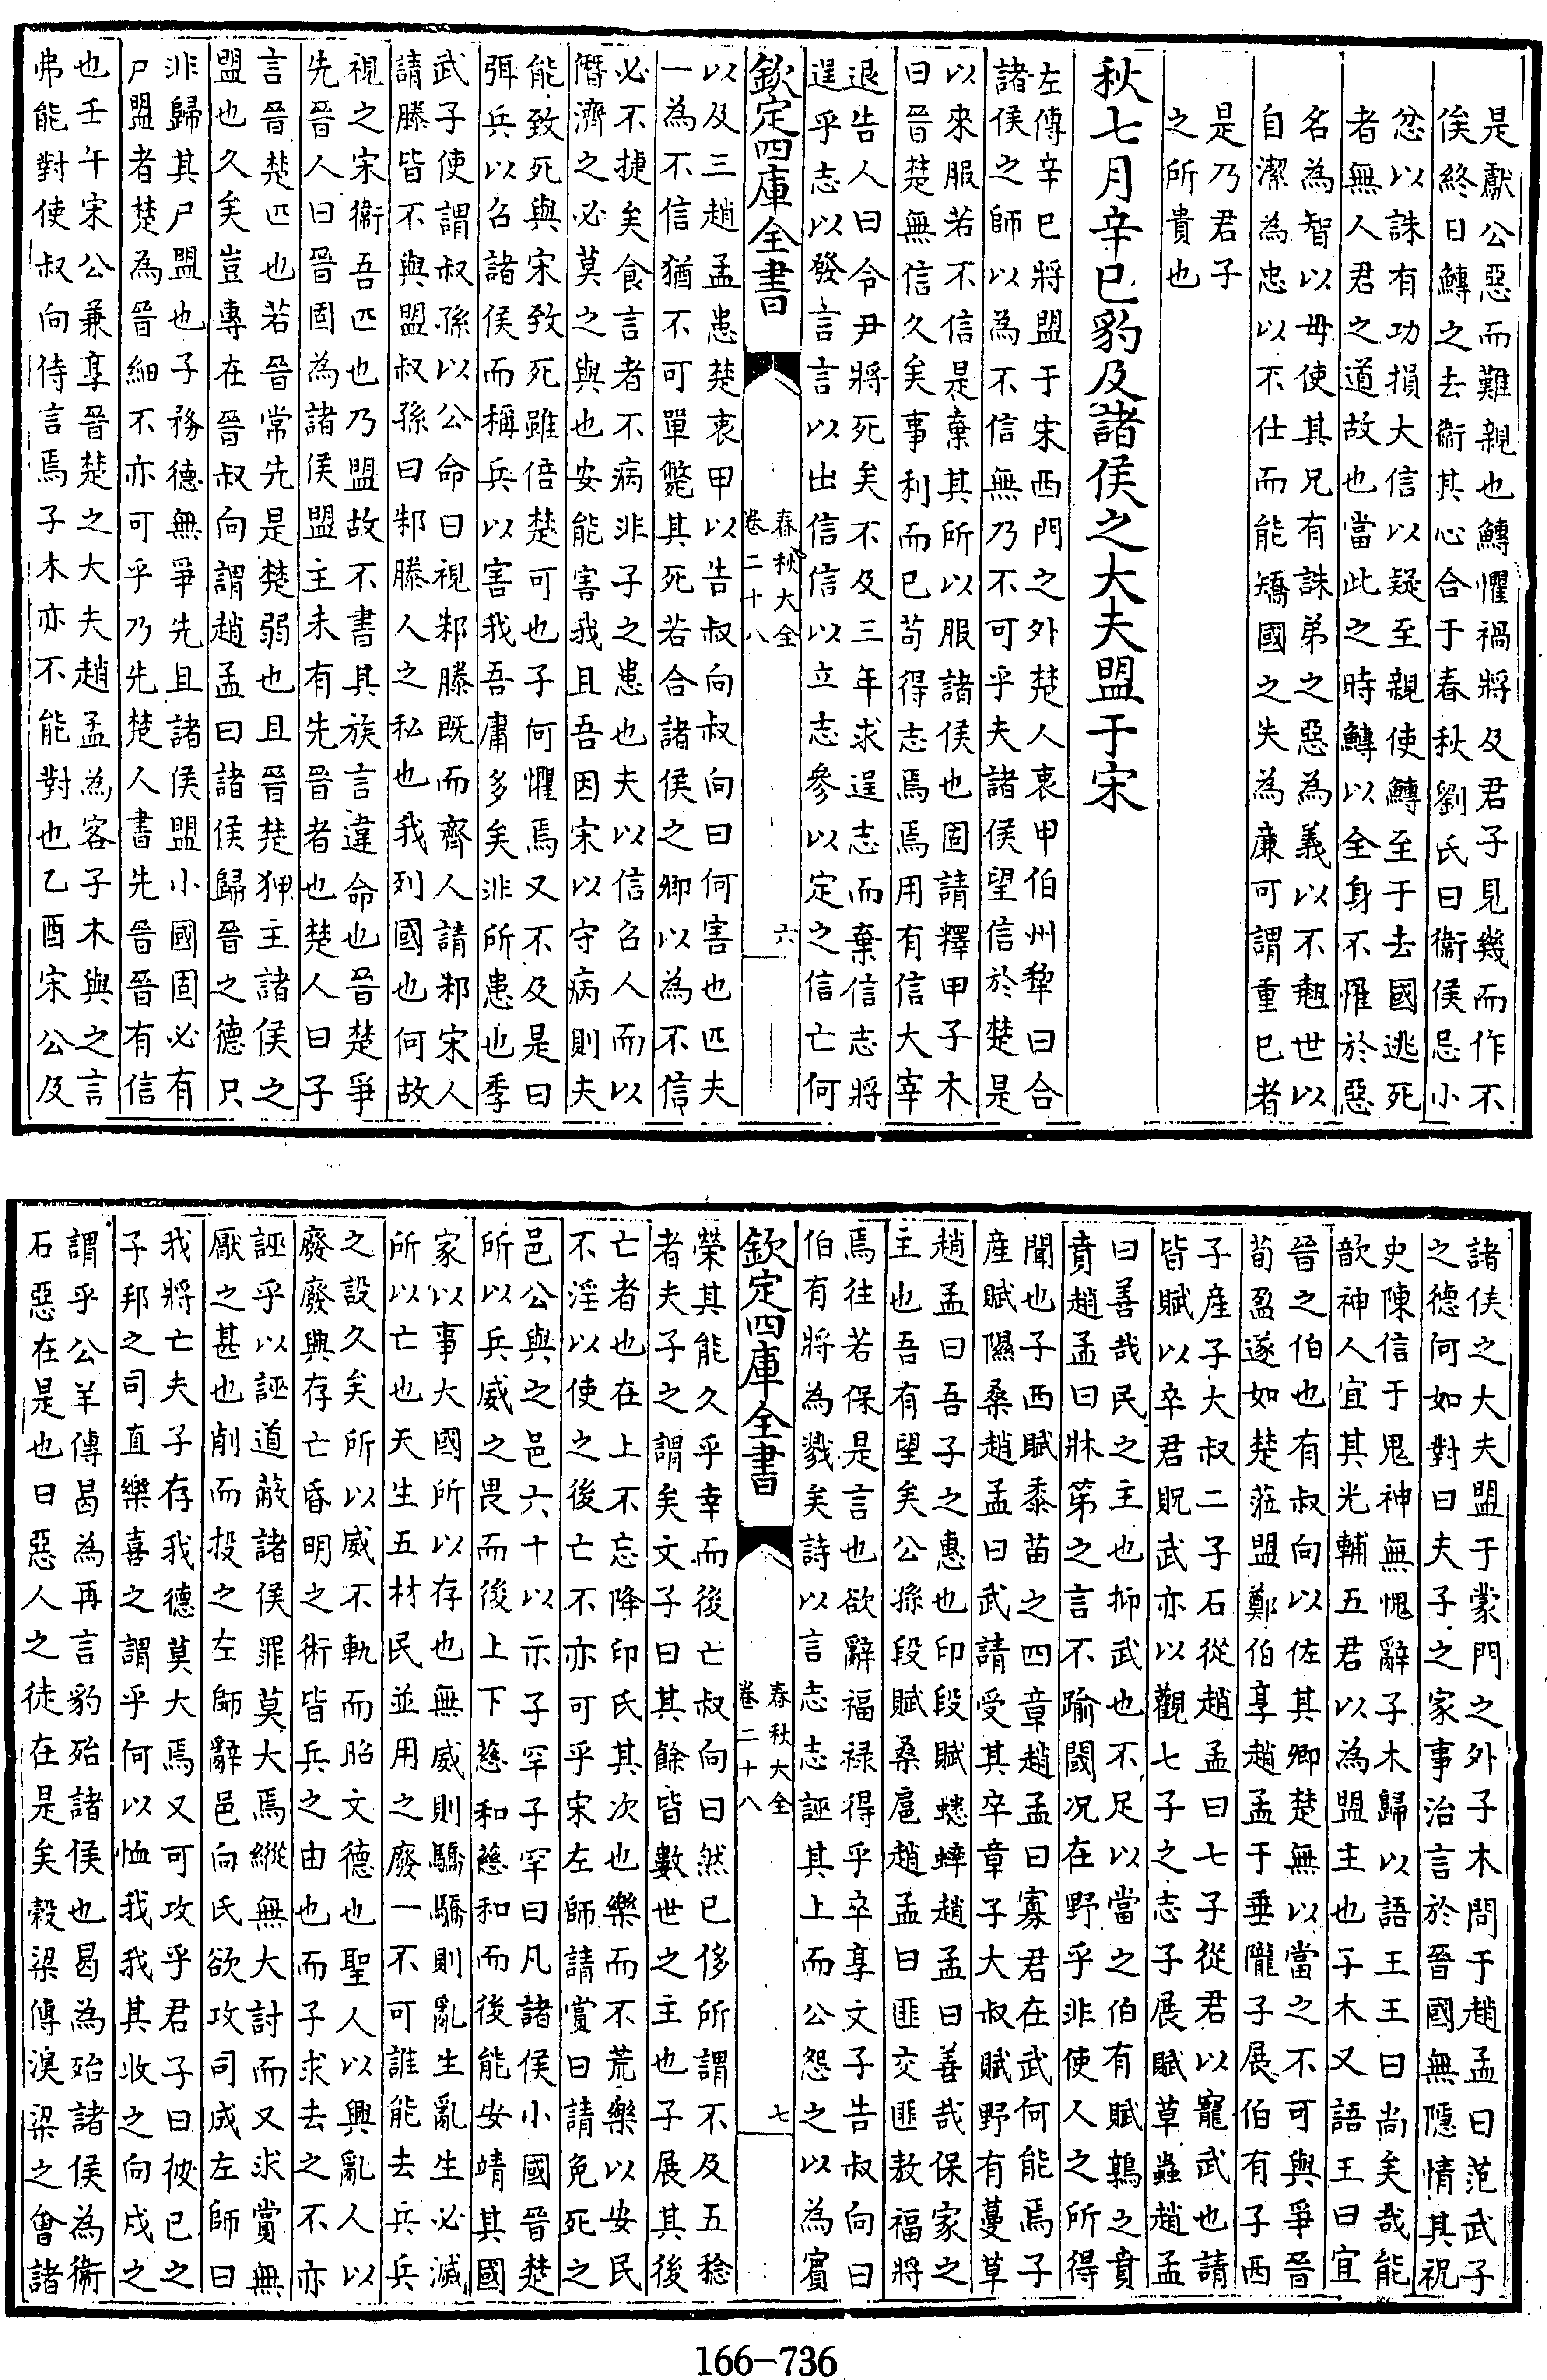 是獻公惡而難親也鱄懼禍將及君子見幾而作不
俟終日鱄之去衞其心合于春秋劉氏曰衞侯忌小
忿以誅有功損大信以疑至親使鱄至于去國逃死
者無人君之道故也當此之時鱄以全身不罹於惡
名為智以毋使其兄有誅弟之惡為義以不䎩世以
自潔為忠以不仕而能矯國之失為廉可謂重已者
是乃君子
之所貴也
秋七月辛巳豹及諸侯之大夫盟于宋
左傳辛巳將盟于宋西門之外楚人衷甲伯州犂曰合
諸侯之師以為不信無乃不可乎夫諸侯望信於楚是
以來服若不信是棄其所以服諸侯也固請釋甲子木
曰晉楚無信久矣事利而已苟得志焉焉用有信大宰
退告人曰令尹將死矣不及三年求逞志而棄信志將
逞乎志以發言言以出信信以立志參以定之信亡何
欽定四庫全書
春秋大全
卷二十八
六
以及三趙孟患楚衷甲以告叔向叔向曰何害也匹夫
一為不信猶不可單斃其死若合諸侯之卿以為不信
必不捷矣食言者不病非子之患也夫以信召人而以
僭濟之必莫之與也安能害我且吾因宋以守病則夫
能致死與宋致死雖倍楚可也子何懼焉又不及是曰
弭兵以召諸侯而稱兵以害我吾庸多矣非所患也季
武子使謂叔孫以公命曰視邾滕既而齊人請邾宋人
請滕皆不與盟叔孫曰邾滕人之私也我列國也何故
視之宋衞吾匹也乃盟故不書其族言違命也晉楚爭
先晉人曰晉固為諸侯盟主未有先晉者也楚人曰子
言晉楚匹也若晉常先是楚弱也且晉楚狎主諸侯之
盟也久矣豈專在晉叔向謂趙孟曰諸侯歸晉之德只
非歸其尸盟也子務德無爭先且諸侯盟小國固必有
尸盟者楚為晉細不亦可乎乃先楚人書先晉晉有信
也壬午宋公兼享晉楚之大夫趙孟為客子木與之言
弗能對使叔向侍言焉子木亦不能對也乙酉宋公及
諸侯之大夫盟于蒙門之外子木問于趙孟曰范武子
之德何如對曰夫子之家事治言於晉國無隱情其祝
史陳信于鬼神無愧辭子木歸以語王王曰尚矣哉能
歆神人宜其光輔五君以為盟主也子木又語王曰宜
晉之伯也有叔向以佐其卿楚無以當之不可與爭晉
荀盈遂如楚蒞盟鄭伯享趙孟于垂隴子展伯有子西
子產子大叔二子石從趙孟曰七子從君以寵武也請
皆賦以卒君貺武亦以觀七子之志子展賦草蟲趙孟
曰善哉民之主也抑武也不足以當之伯有賦鶉之賁
賁趙孟曰牀第之言不踰閾况在野乎非使人之所得
聞也子西賦黍苗之四章趙孟曰寡君在武何能焉子
產賦隰桑趙孟曰武請受其卒章子大叔賦野有蔓草
趙孟曰吾子之惠也印段賦蟋蟀趙孟曰善哉保家之
主也吾有望矣公孫段賦桑扈趙孟曰匪交匪敖福將
焉往若保是言也欲辭福禄得乎卒享文子告叔向曰
伯有將為戮矣詩以言志志誣其上而公怨之以為賓
欽定四庫全書
春秋大全
卷二十八
七
榮其能久乎幸而後亡叔向曰然已侈所謂不及五稔
者夫子之謂矣文子曰其餘皆數世之主也子展其後
亡者也在上不忘降印氏其次也樂而不荒樂以安民
不淫以使之後亡不亦可乎宋左師請賞曰請免死之
邑公與之邑六十以示子罕子罕曰凡諸侯小國晉楚
所以兵威之畏而後上下慈和慈和而後能安靖其國
家以事大國所以存也無威則驕驕則亂生亂生必滅
所以亡也天生五材民並用之廢一不可誰能去兵兵
之設久矣所以威不軌而昭文德也聖人以興亂人以
廢廢興存亡昏明之術皆兵之由也而子求去之不亦
誣乎以誣道蔽諸侯罪莫大焉縱無大討而又求賞無
厭之甚也削而投之左師辭邑向氏欲攻司成左師曰
我將亡夫子存我德莫大焉又可攻乎君子曰彼已之
子邦之司直樂喜之謂乎何以恤我我其收之向戌之
謂乎公羊傳曷為再言豹殆諸侯也曷為殆諸侯為衞
石惡在是也曰惡人之徒在是矣穀梁傳湨梁之會諸
166-736